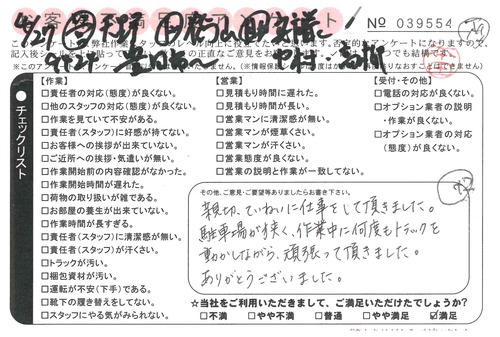 4/27
アンケート!
No 039554
この正直なご意見をお聞かせ下さい。否定的なアンケートになりますので、
チェックリスト
【作業】
□責任者の対応(態度)が良くない。
□他のスタッフの対応(態度)が良くない。
□作業を見ていて不安がある。
□責任者(スタッフ)に好感が持てない。
□お客様への挨拶が出来ていない。
□ご近所への挨拶・気遣いが無い。
□作業開始前の内容確認がなかった。
□作業開始時間が遅れた。
□荷物の取り扱いが雑である。
□お部屋の養生が出来ていない。
□作業時間が長すぎる。
□責任者(スタッフ)に清潔感が無い。
□責任者(スタッフ)が汗くさい。
□トラックが汚い。
□梱包資材が汚い。
□運転が不安(下手)である。
□靴下の履き替えをしてない。
□スタッフにやる気がみられない。
【営業】
□見積もり時間に遅れた。
□見積もり時間が長い。
□営業マンに清潔感が無い。
□営業マンが煙草くさい。
□営業マンが汗くさい。
□営業態度が良くない。
□営業の説明と作業が一致してない。
【受付・その他】
□電話の対応が良くない。
□オプション業者の説明
・作業が良くない。
□オプション業者の対応
(態度)が良くない。
その他、ご意見・ご要望等ありましたらお書き下さい。
親切、ていねいに仕事をして頂きました。
駐車場が狭く、作業中に何度もトラックを
動かしながら、頑張って頂きました。
ありがとうございました。
☆当社をご利用いただきまして、ご満足いただけたでしょうか?
□不満 □やや不満 □普通 □やや満足 ☑満足